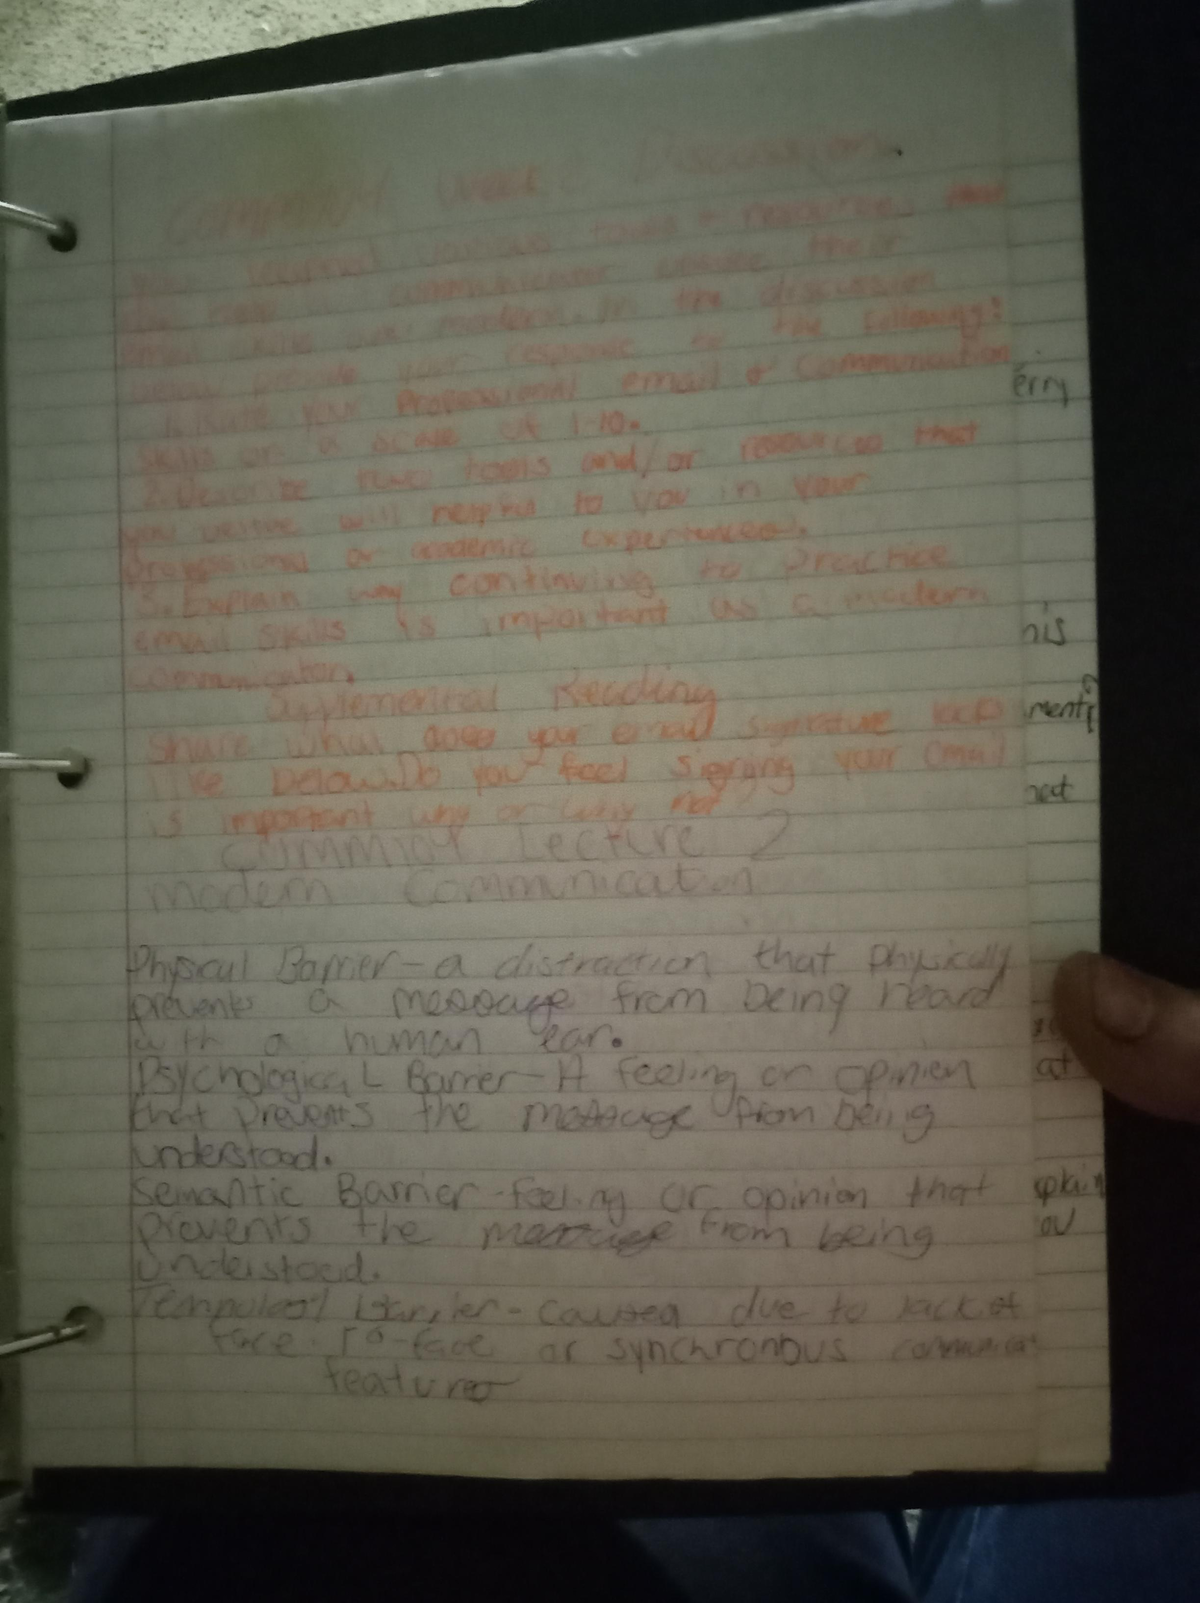 Discussion
You learned various tools + resources that
communicator their
modern. In the discussion
below provide your response to the following:
1. Rate your Professional email & Communication
skills on a scale of 1-10.
2. Describe two tools and/or resources that
you will helpful to you in your
professional or academic experiences.
3. Explain why continuing to Practice
email skills is important as a modern
Reading
share what does your email signature look
like below. Do you feel signing your email
is important why or why not
Lecture 2
modern Communication
Physical Barrier - a distraction that physically
prevents a message from being heard
with a human ear.
Psychological Barrier - A feeling or opinion
that prevents the message from being
understood.
Semantic Barrier - feeling or opinion that
prevents the message from being
understood.
Barrier - caused due to lack of
face-to-face or synchronous
features
erry
his
ment?
not
at
xplain
ou